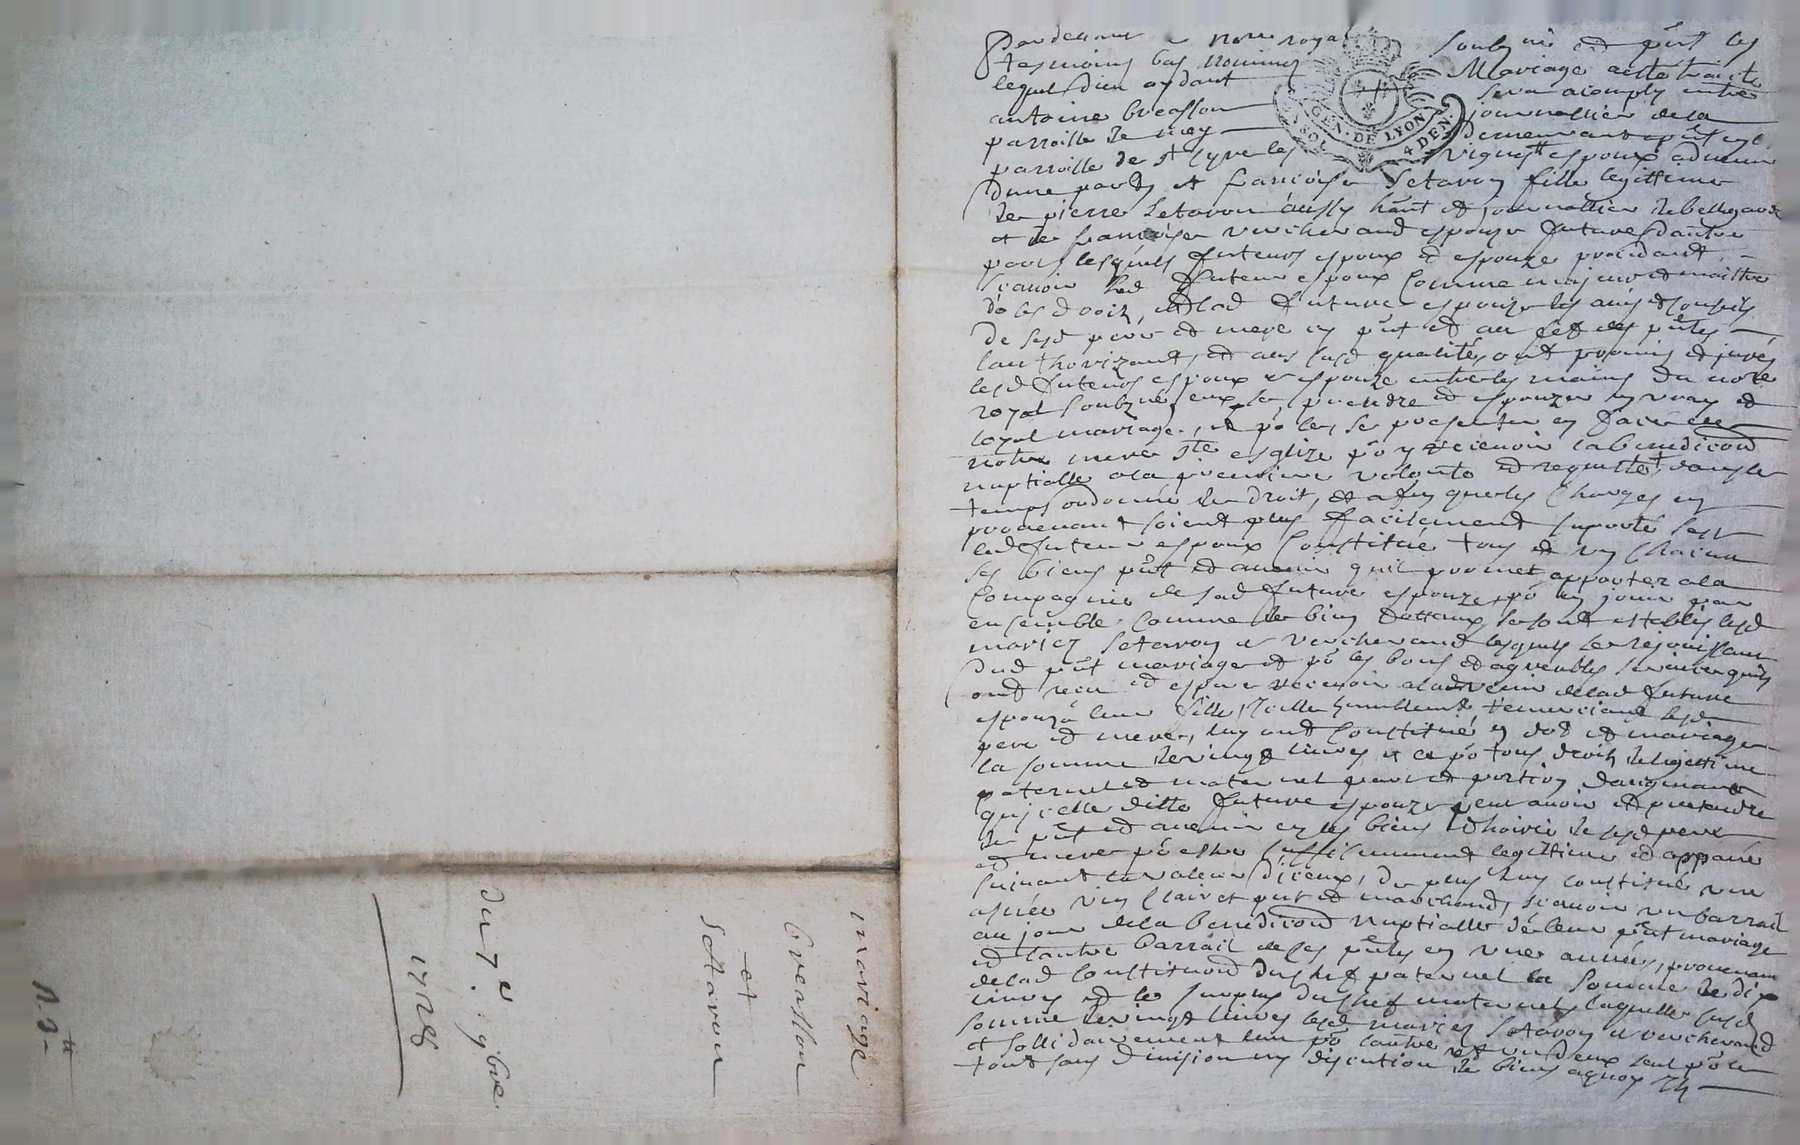 mariage
breasson
et
setaron
du 7e 9bre
1728
Pardevant le nore royal soubzné et pñt les
tesmoins bas nommés Mariage a esté traité
lequel dieu aydant sera acomply entre
antoine breasson journallier de la
parroisse de
parroisse de st cyre les vignes espoux advenir
d'une part et francoise setaron fille legittime
de pierre setaron aussy hãnt et journallier de bellegarde
et de francoise vercherand espouze future d'autre
part lesquels futeurs espoux et espouze procedant
scavoir led futeur espoux comme majeur et maittre
de ses droitz, et lad future espouze des avis et conseils
de sesd pere et mere
l'authorizant, et aus susd qualités ont promis et jurés
lesd futeurs espoux et espouze entre les mains du notre
royal soubzné, eux se prendre et espouzer en vray et
loyal mariage, et po les se presenter en face de
notre mere ste esglize po y recevoir la benediction
nuptialle a la premiere volonté et requisition dans le
temps ordonné de droit, et afin que les charges en
provenant soient plus facilement suporté
led futeur espoux constitue tous et un chacun
ses biens pñt et avenir qu'il promet apporter a la
compagnie de sad future espouze, po en jouir par
ensemble comme de bien dottaux se sont establis lesd
mariez setaron et vercherand lesquels se rejouissant
dud pñt mariage et po les bons et agreables services qu'ils
ont receu et espere recevoir a l'advenir de lad future
espouze leur fille, icelle humblement remerciant lesd
pere et mere, luy ont constitué en dot et mariage
la somme de vingt livres et ce po tous droits de legittime
paternel et maternel part et portion d'augmant
qu'icelle ditte future espouze peut avoir et pretendre
de pñt et avenir en les biens et hoirie de sesd pere
et mere po estre suffisamment legittime et appané
suivant la valeur d'iceux, de plus luy constitue une
asnée vin clairet pur et marchand, scavoir un barrail
au jour de la benediction nuptialle de leur pñt mariage
et l'autre barrail de ses pñtes en une année, provenant
de lad constitution du chef paternel la somme de dix
livres et le surplus du chef maternel laquelle susd
somme de vingt livres lesd mariez setaron et vercherand
et sollidairement l'un po l'autre et un d'eux seul po le
tout sans division ny discution de biens a quoy
GEN. DE LYON
4 DEN.